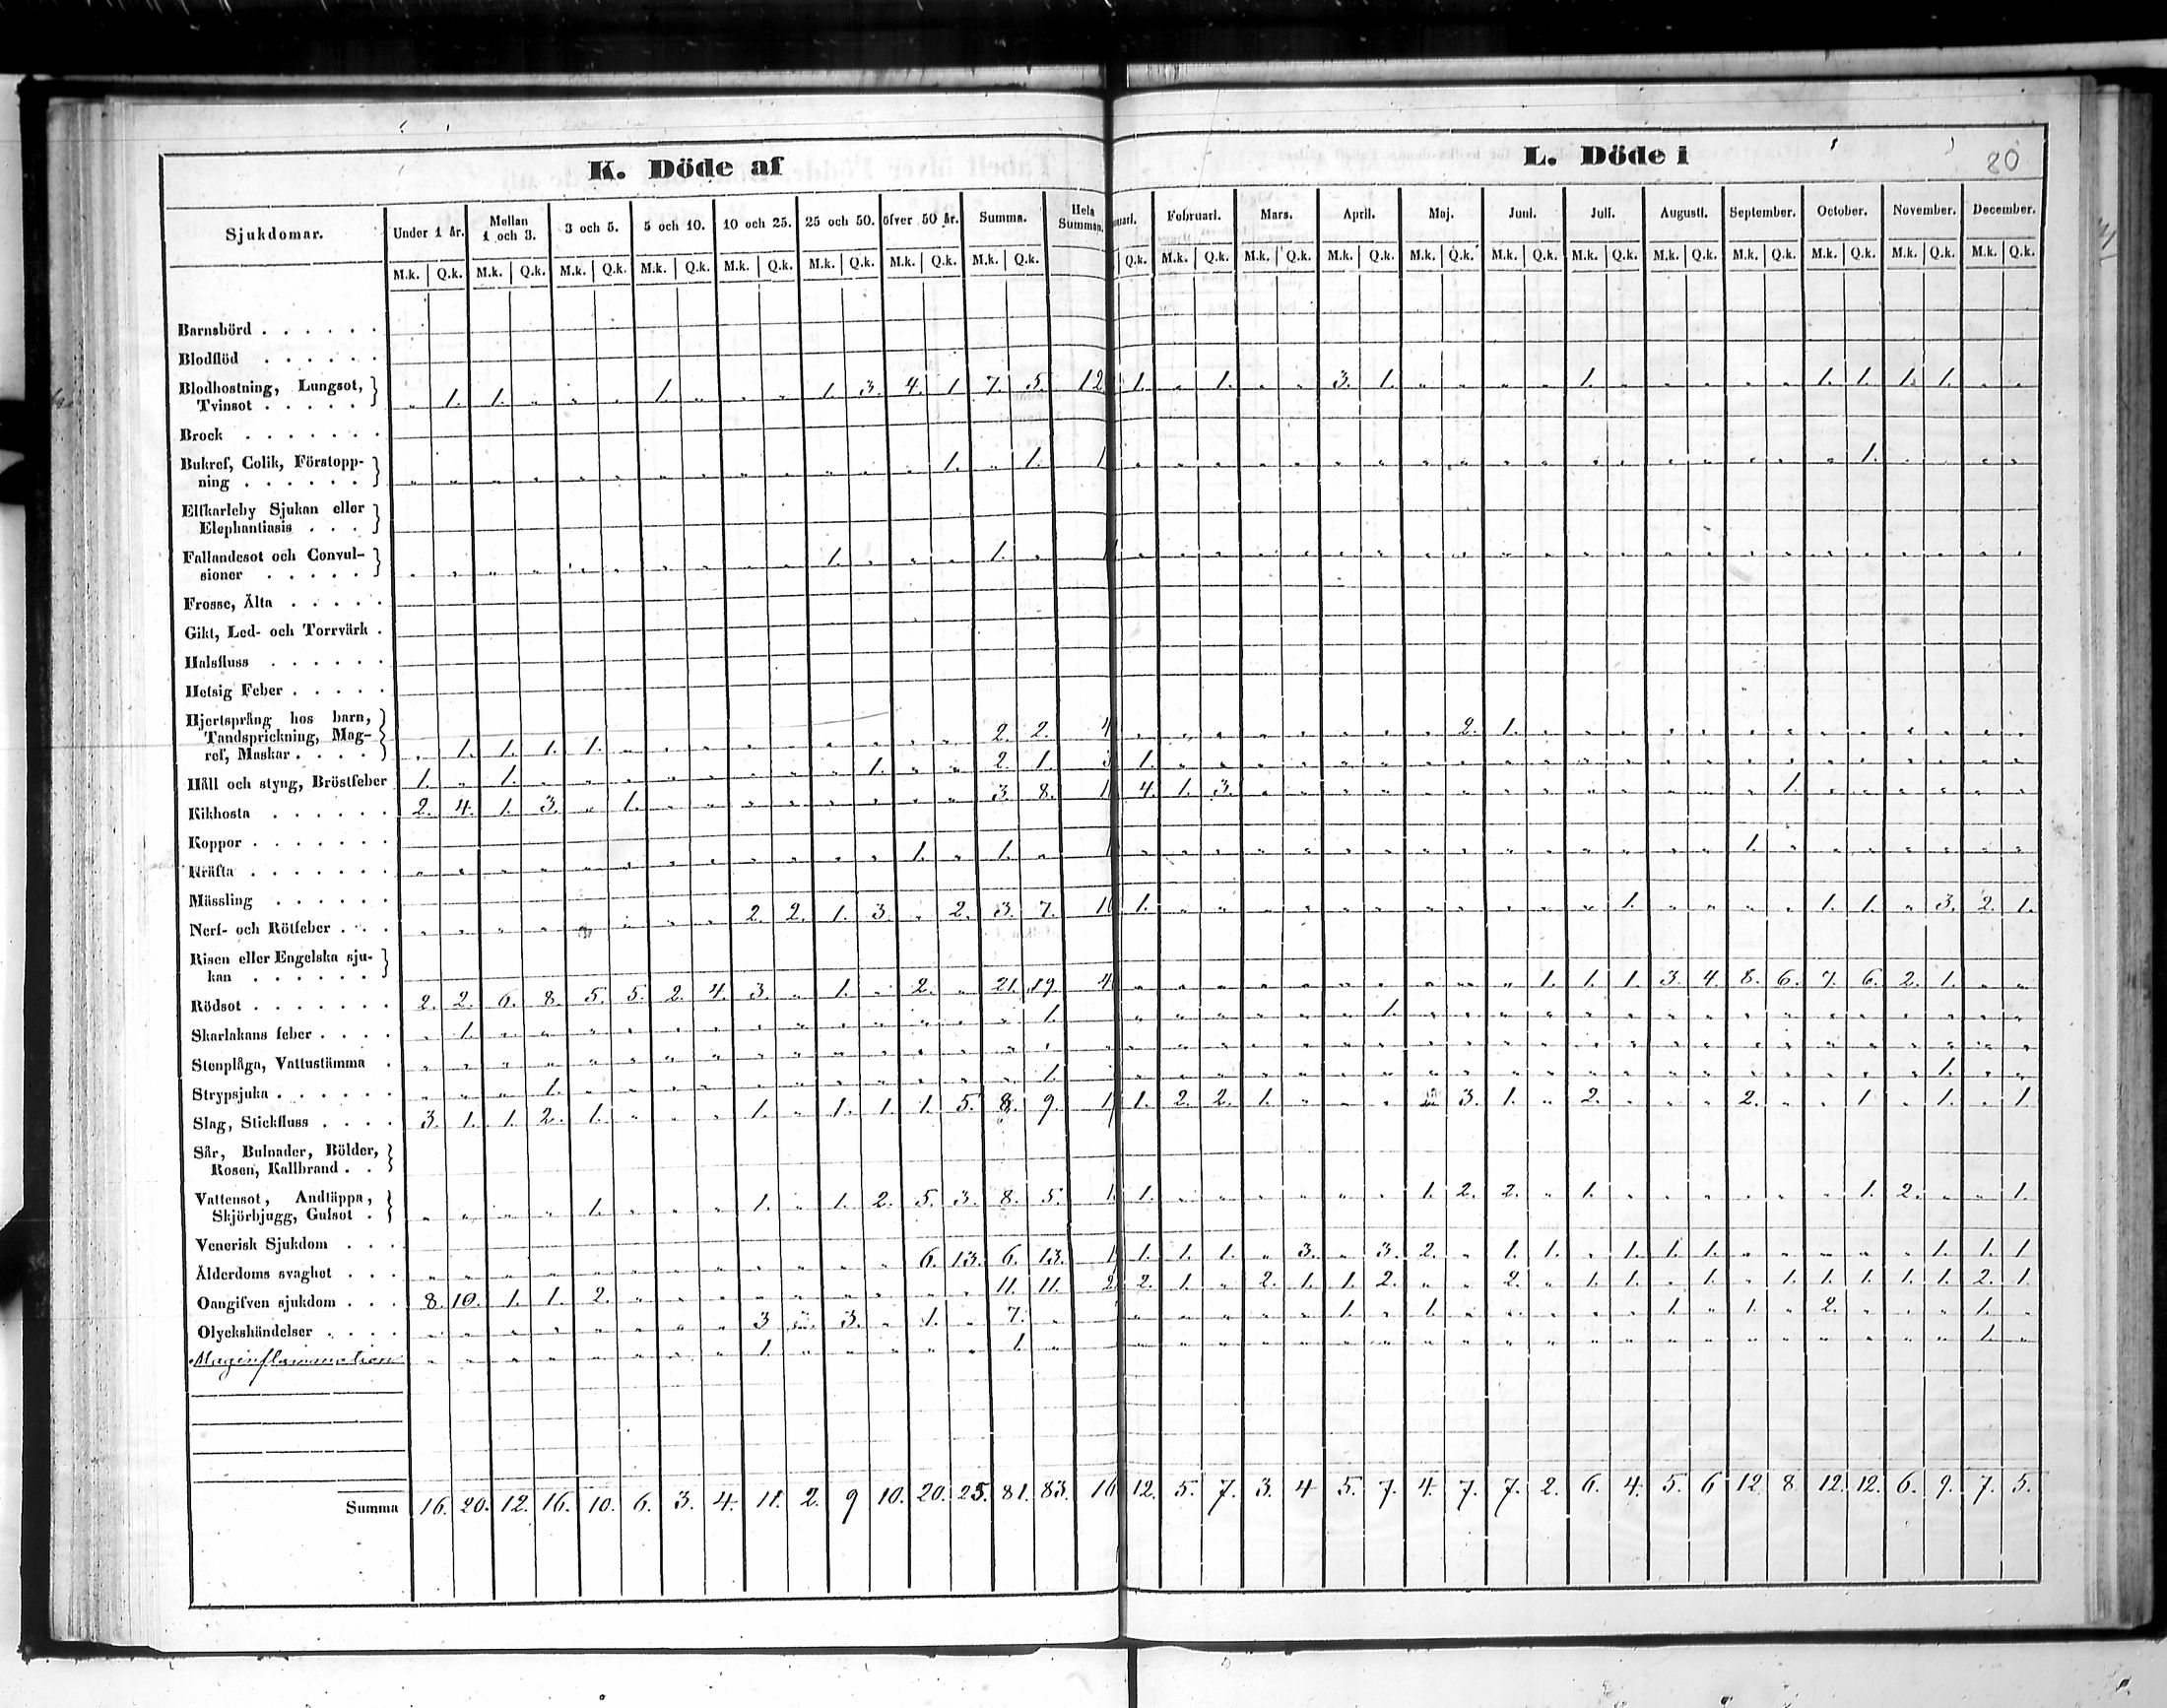 K. Döde af
L. Döde i
80
Sjukdomar. Under 1 år. Mellan 1 och 3. 3 och 5. 5 och 10. 10 och 25. 25 och 50. öfver 50 år. Summa. Hela Summan.
Februari. Mars. April. Maj. Juni. Juli. Augusti. September. October. November. December.
M.k. Q.k. M.k. Q.k. M.k. Q.k. M.k. Q.k. M.k. Q.k. M.k. Q.k. M.k. Q.k. M.k. Q.k.
Q.k. M.k. Q.k. M.k. Q.k. M.k. Q.k. M.k. Q.k. M.k. Q.k. M.k. Q.k. M.k. Q.k. M.k. Q.k. M.k. Q.k. M.k. Q.k. M.k. Q.k.
Barnsbörd . . . . . .
Blodflöd . . . . . .
Blodhostning, Lungsot,
Tvinsot . . . . . „ 1. 1. „ „ „ 1. „ „ „ 1. 3. 4. 1. 7. 5. 12 1. „ 1. „ „ 3. 1. „ „ „ „ 1. „ „ „ „ „ 1. 1. 1. 1. „ „
Brock . . . . . . .
Bukref, Colik, Förstopp-
ning . . . . . . „ „ „ „ „ „ „ „ „ „ „ „ „ 1. „ 1. 1 „ „ „ „ „ „ „ „ „ „ „ „ „ „ „ „ „ „ 1. „ „ „ „
Elfkarleby Sjukan eller
Elephantiasis . . .
Fallandesot och Convul-
sioner . . . . . „ „ „ „ „ „ „ „ „ „ 1. „ „ „ 1. „ 1 „ „ „ „ „ „ „ „ „ „ „ „ „ „ „ „ „ „ „ „ „ „ „
Frosse, Älta . . . . .
Gikt, Led- och Torrvärk .
Halsfluss . . . . . .
Hetsig Feber . . . . .
Hjertsprång hos barn,
Tandsprickning, Mag-
ref, Maskar . . . . „ 1. 1. 1. 1. „ „ „ „ „ „ „ „ „ 2. 2. 4 „ „ „ „ „ „ „ „ 2. 1. „ „ „ „ „ „ „ „ „ „ „ „ „
Håll och styng, Bröstfeber 1. „ 1. „ „ „ „ „ „ „ „ 1. „ „ 2. 1. 3 1. „ „ „ „ „ „ „ „ „ „ „ „ „ „ „ „ „ „ „ „ „ „
Kikhosta . . . . . . 2. 4. 1. 3. „ 1. „ „ „ „ „ „ „ „ 3. 8. 1 4. 1. 3. „ „ „ „ „ „ „ „ „ „ „ „ „ 1. „ „ „ „ „ „
Koppor . . . . . . .
Kräfta . . . . . . . „ „ „ „ „ „ „ „ „ „ „ „ 1. „ 1. „ 1 „ „ „ „ „ „ „ „ „ „ „ „ „ „ „ 1. „ „ „ „ „ „ „
Mässling . . . . . .
Nerf- och Rötfeber . . . „ „ „ „ „ „ „ „ 2. 2. 1. 3. „ 2. 3. 7. 10 1. „ „ „ „ „ „ „ „ „ „ „ 1. „ „ „ „ 1. 1. „ 3. 2. 1.
Risen eller Engelska sju-
kan . . . . . .
Rödsot . . . . . . . 2. 2. 6. 8. 5. 5. 2. 4. 3. „ 1. „ 2. „ 21. 19. 4 „ „ „ „ „ „ „ „ „ „ 1. 1. 1. 3. 4. 8. 6. 7. 6. 2. 1. „ „
Skarlakans feber . . . . „ 1. „ „ „ „ „ „ „ „ „ „ „ „ „ 1. „ „ „ „ „ „ 1. „ „ „ „ „ „ „ „ „ „ „ „ „ „ „ „
Stenplåga, Vattustämma . „ „ „ „ „ „ „ „ „ „ „ „ „ „ „ „ „ „ „ „ „ „ „ „ „ „ „ „ „ „ „ „ „ „ „ „ „ „ „
Strypsjuka . . . . . . „ „ „ 1. „ „ „ „ „ „ „ „ „ „ „ 1. „ „ „ „ „ „ „ „ „ „ „ „ „ „ „ „ „ „ „ „ 1. „ „
Slag, Stickfluss . . . . 3. 1. 1. 2. 1. „ „ „ 1. „ 1. 1. 1. 5. 8. 9. 1 1. 2. 2. 1. „ „ „ „ 3. 1. „ 2. „ „ „ 2. „ „ 1. „ 1. „ 1.
Sår, Bulnader, Bölder,
Rosen, Kallbrand . .
Vattensot, Andtäppa,
Skjörbjugg, Gulsot . „ „ „ „ 1. „ „ „ 1. „ 1. 2. 5. 3. 8. 5. 1. 1. „ „ „ „ „ „ 1. 2. 2. „ 1. „ „ „ „ „ „ 1. 2. „ „ 1.
Venerisk Sjukdom . . .
Ålderdoms svaghet . . . „ „ „ „ „ „ „ „ „ „ „ „ 6. 13. 6. 13. 1 1. 1. 1. „ 3. „ 3. 2. „ 1. 1. „ 1. 1. 1. „ „ „ „ „ 1. 1. 1
Oangifven sjukdom . . . 8. 10. 1. 1. 2. „ „ „ „ „ „ „ „ „ 11. 11. 2 2. 1. „ 2. 1. 1. 2. „ „ 2. „ 1. 1. „ 1. „ 1. 1. 1. 1. 1. 2. 1.
Olyckshändelser . . . . „ „ „ „ „ „ „ „ 3 „ 3. „ 1. „ 7. „ „ „ „ „ „ 1. „ 1. „ „ „ „ „ 1. „ 1. „ 2. „ „ „ 1. „
Maginflammation „ „ „ „ „ „ „ „ 1. „ „ „ „ „ 1. „ „ „ „ „ „ „ „ „ „ „ „ „ „ „ „ „ „ „ „ „ „ 1. „
Summa 16. 20. 12. 16. 10. 6. 3. 4. 11. 2. 9 10. 20. 25. 81. 83. 16 12. 5. 7. 3. 4 5. 7. 4. 7. 7. 2. 6. 4. 5. 6 12. 8 12. 12. 6. 9. 7. 5.